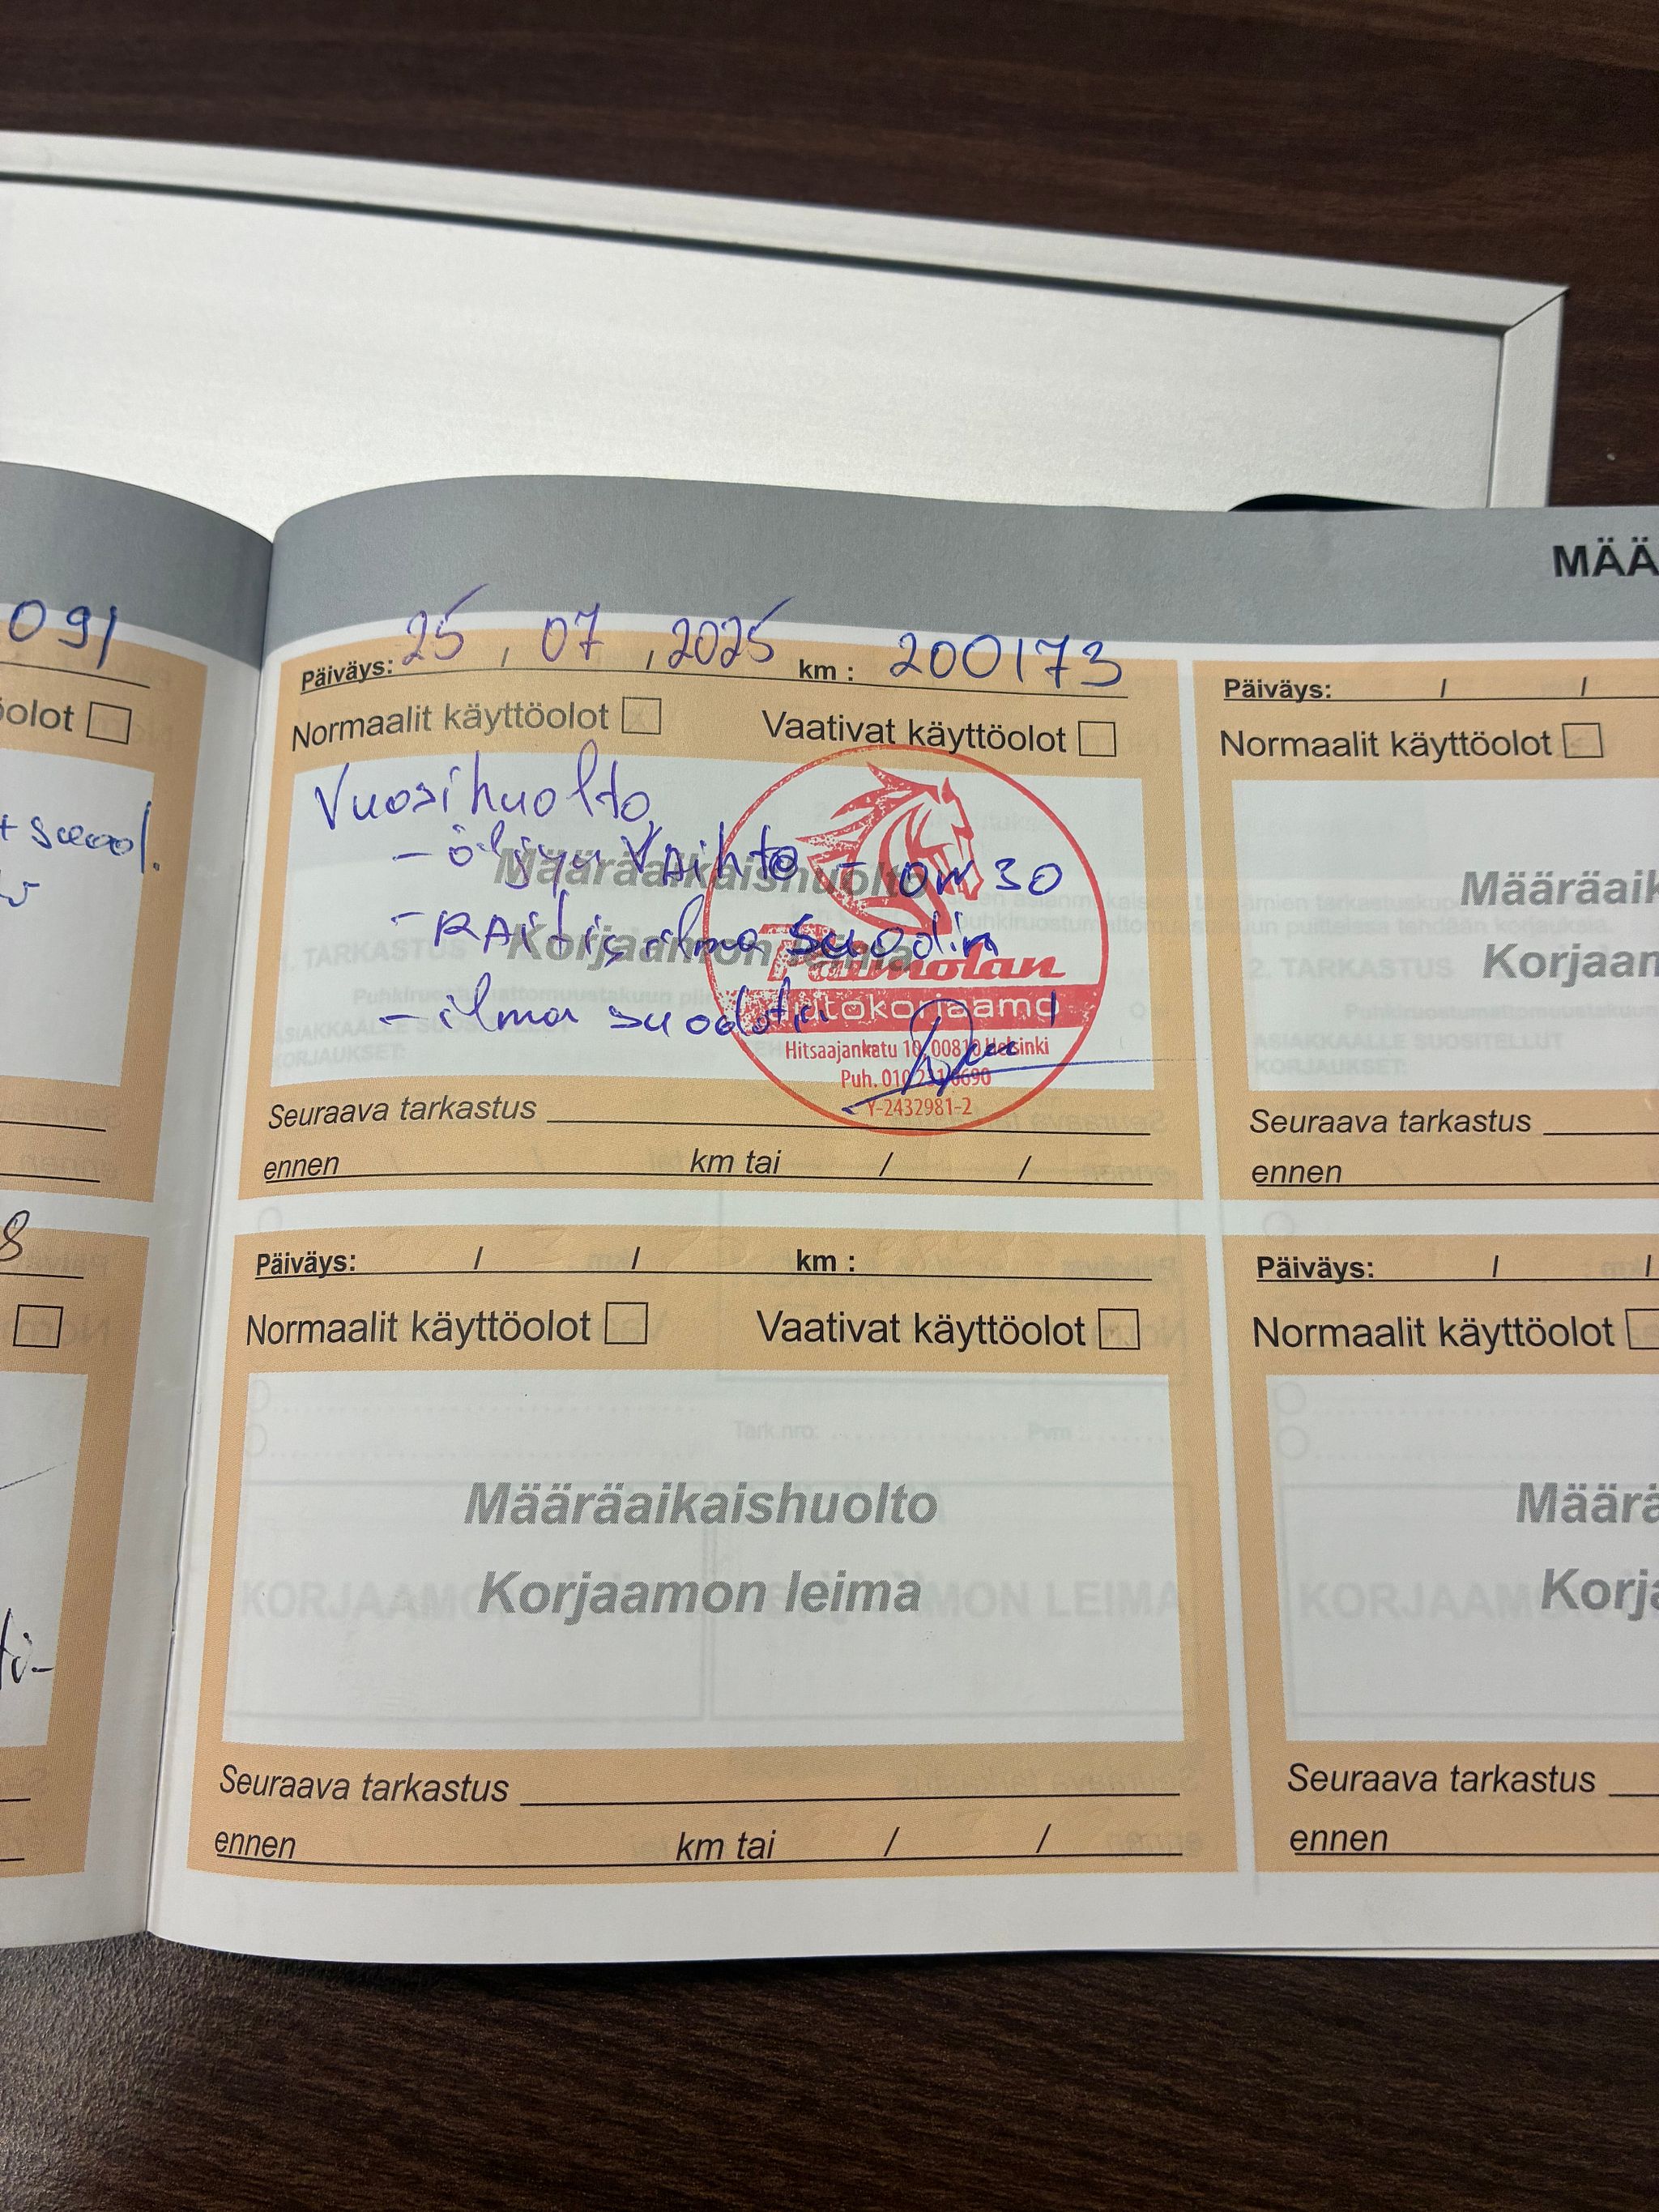 MÄÄ
091
olot
+ suod.
25 / 07 / 2025 km : 200173
Päiväys:
Normaalit käyttöolot Vaativat käyttöolot
Vuosihuolto
- öljyn vaihto - 0W30
- RAitis ilma suodin
- ilma suodatin
Määräaikaishuolto
Korjaamon leima
autokorjaamo
Hitsaajankatu 10, 00810 Helsinki
Puh. 010
Y-2432981-2
Seuraava tarkastus
ennen km tai / /
Päiväys: / /
Normaalit käyttöolot
Määräaik
Korjaam
1. TARKASTUS
2. TARKASTUS
ASIAKKAALLE SUOSITELLUT
KORJAUKSET:
Seuraava tarkastus
ennen
8
Päiväys: / / km :
Normaalit käyttöolot Vaativat käyttöolot
Määräaikaishuolto
Korjaamon leima
Seuraava tarkastus
ennen km tai / /
Päiväys: / /
Normaalit käyttöolot
Määrä
Korja
Seuraava tarkastus
ennen